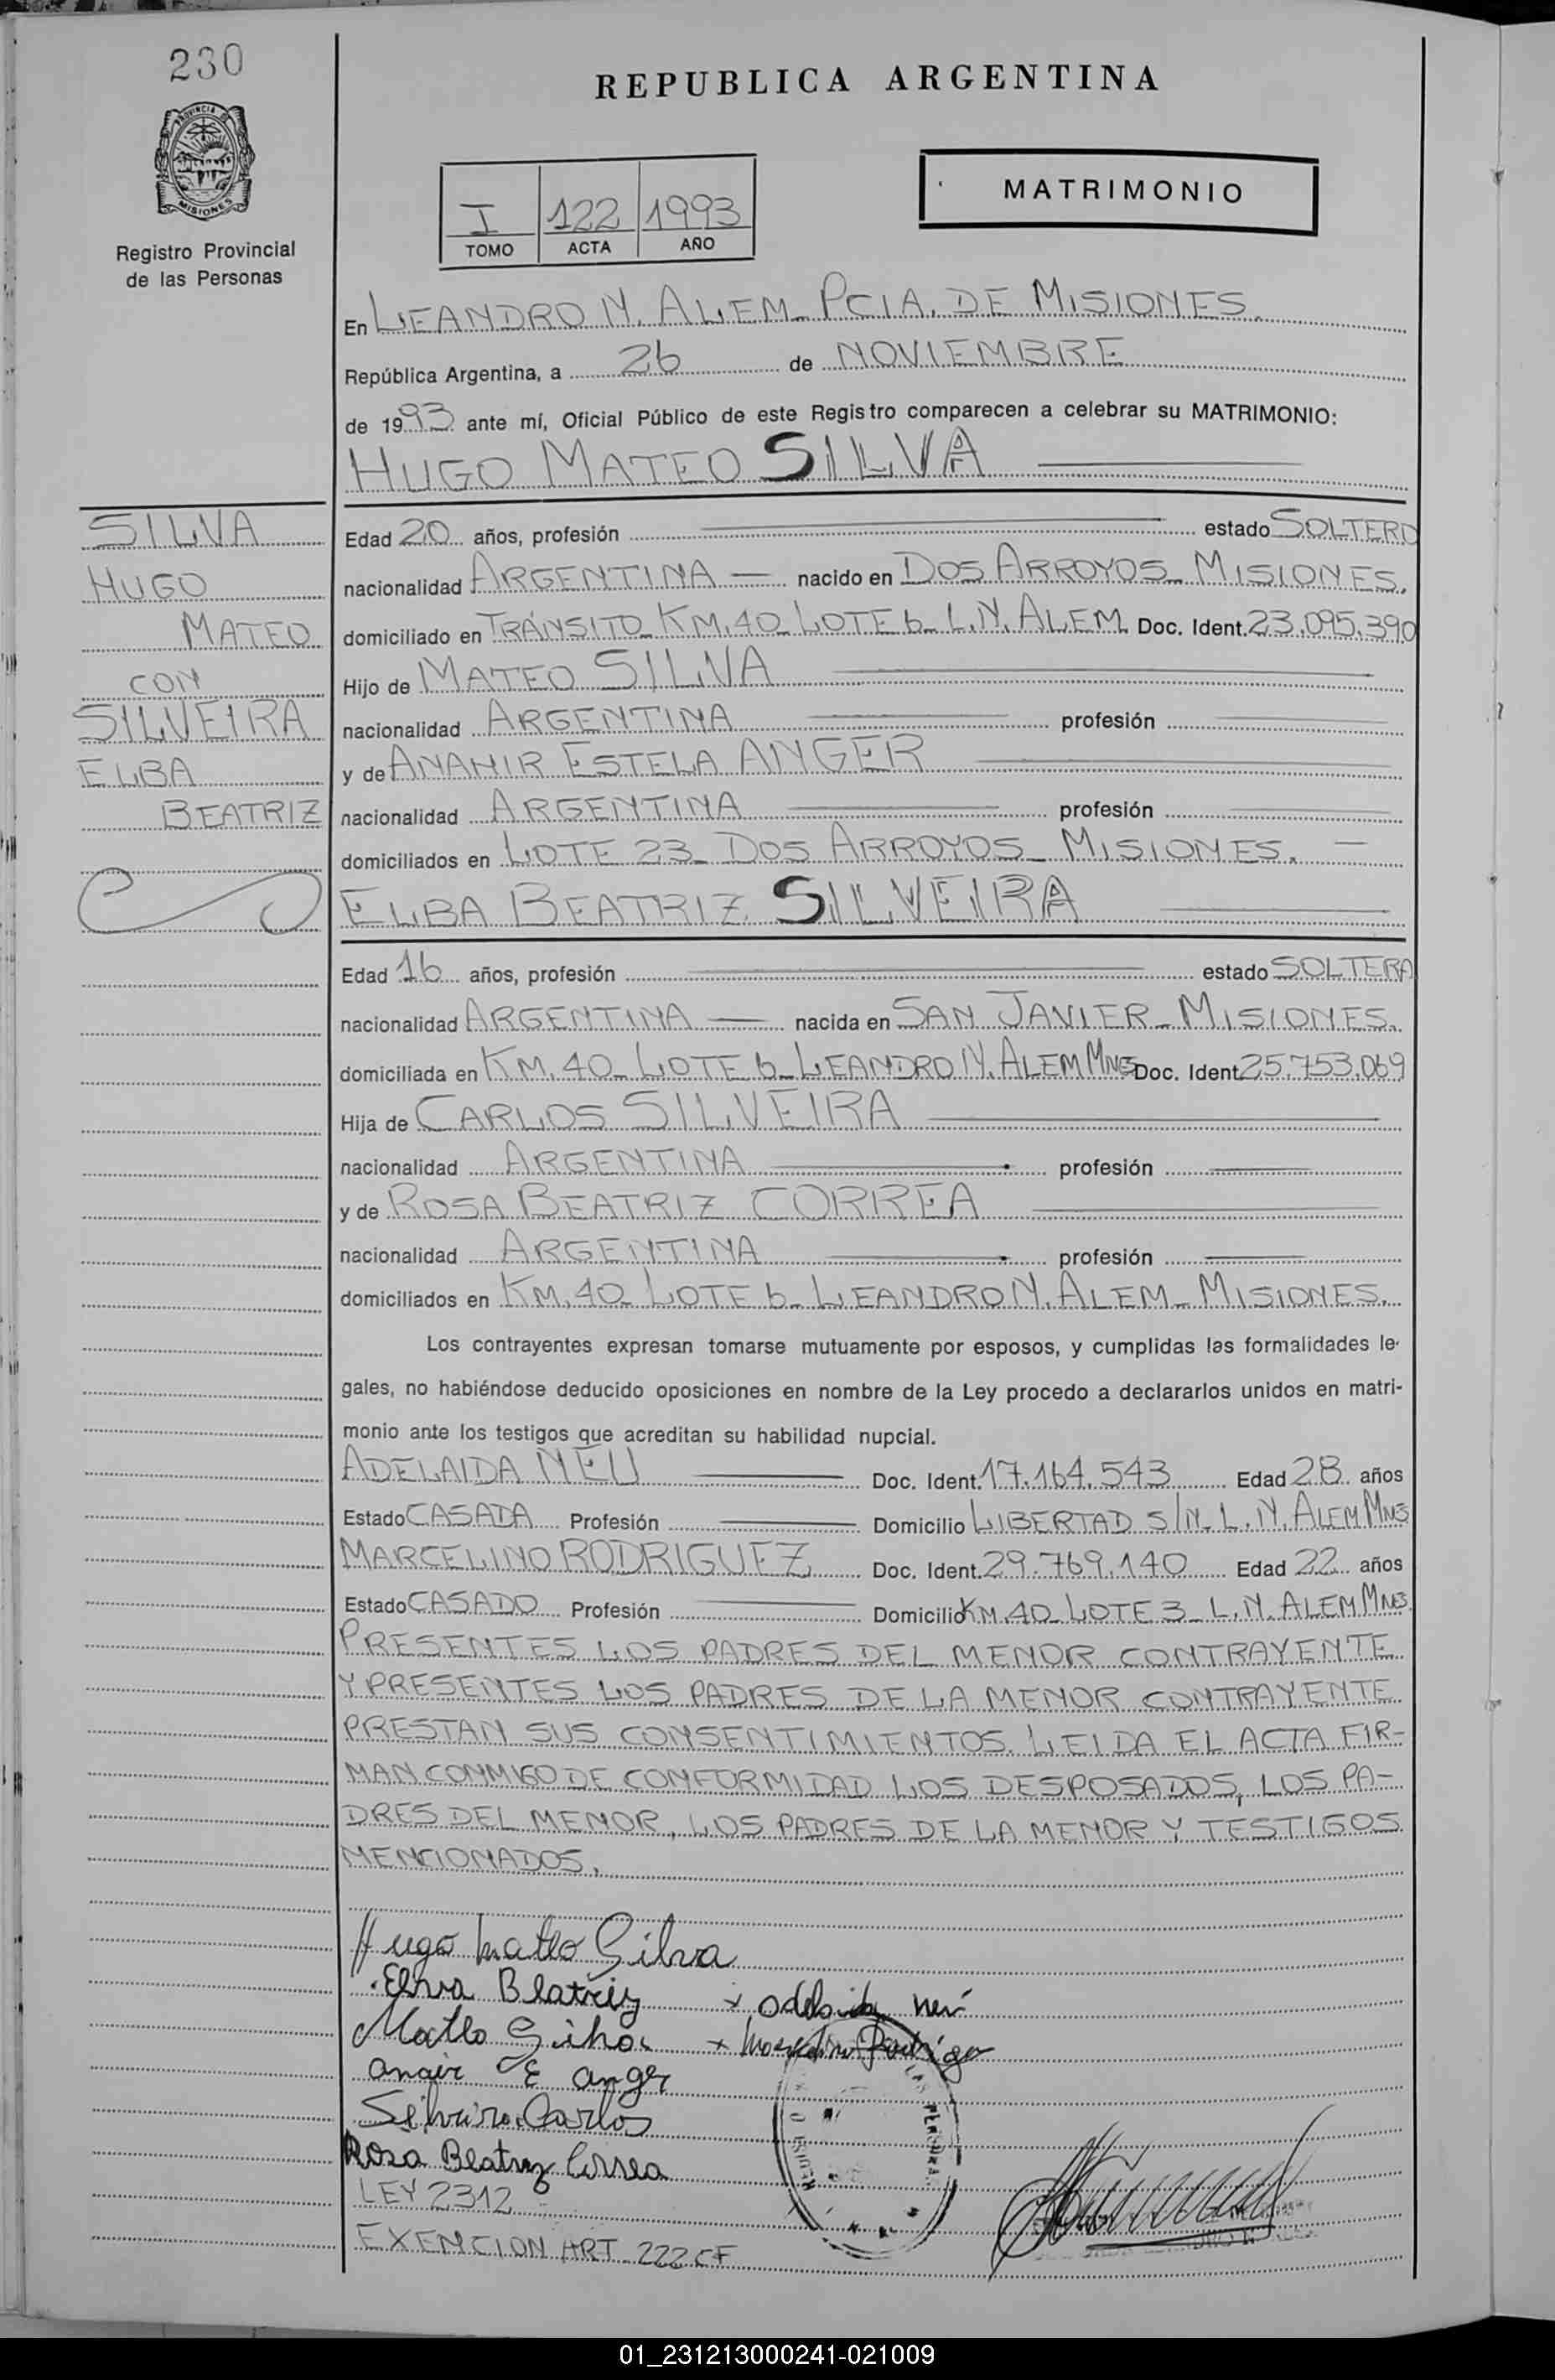 230
REPUBLICA ARGENTINA
PROVINCIA DE
MISIONES
Registro Provincial
de las Personas
I 122 1993
TOMO ACTA AÑO
MATRIMONIO
En LEANDRO N. ALEM_ PCIA. DE MISIONES.
República Argentina, a 26 de NOVIEMBRE
de 1993 ante mí, Oficial Público de este Registro comparecen a celebrar su MATRIMONIO:
HUGO MATEO SILVA
SILVA
HUGO
MATEO
CON
SILVEIRA
ELBA
BEATRIZ
Edad 20 años, profesión estado SOLTERO
nacionalidad ARGENTINA — nacido en DOS ARROYOS_ MISIONES.
domiciliado en TRÁNSITO_ KM. 40_ LOTE 6_ L.N. ALEM Doc. Ident. 23.095.390
Hijo de MATEO SILVA
nacionalidad ARGENTINA profesión
y de ANAHIR ESTELA ANGER
nacionalidad ARGENTINA profesión
domiciliados en LOTE 23_ DOS ARROYOS_ MISIONES. —
ELBA BEATRIZ SILVEIRA
Edad 16 años, profesión estado SOLTERA
nacionalidad ARGENTINA — nacida en SAN JAVIER_ MISIONES.
domiciliada en KM. 40_ LOTE 6_ LEANDRO N. ALEM MNES Doc. Ident. 25.753.069
Hija de CARLOS SILVEIRA
nacionalidad ARGENTINA profesión
y de ROSA BEATRIZ CORREA
nacionalidad ARGENTINA profesión
domiciliados en KM. 40_ LOTE 6_ LEANDRO N. ALEM_ MISIONES.
Los contrayentes expresan tomarse mutuamente por esposos, y cumplidas las formalidades le-
gales, no habiéndose deducido oposiciones en nombre de la Ley procedo a declararlos unidos en matri-
monio ante los testigos que acreditan su habilidad nupcial.
ADELAIDA NEU Doc. Ident. 17.164.543 Edad 28 años
Estado CASADA Profesión Domicilio LIBERTAD S/N_ L.N. ALEM MNES
MARCELINO RODRIGUEZ Doc. Ident. 29.769.140 Edad 22 años
Estado CASADO Profesión Domicilio KM. 40_ LOTE 3_ L.N. ALEM MNES
PRESENTES LOS PADRES DEL MENOR CONTRAYENTE
Y PRESENTES LOS PADRES DE LA MENOR CONTRAYENTE
PRESTAN SUS CONSENTIMIENTOS. LEIDA EL ACTA FIR-
MAN CONMIGO DE CONFORMIDAD LOS DESPOSADOS, LOS PA-
DRES DEL MENOR, LOS PADRES DE LA MENOR Y TESTIGOS
MENCIONADOS.
Hugo Mateo Silva
Elva Beatriz x Adelaida neu
Mateo Silva x Marcelino Rodrigez
anair E anger
Silveira Carlos
Rosa Beatriz Correa
LEY 2312
EXENCION ART. 222 CF
01_231213000241-021009